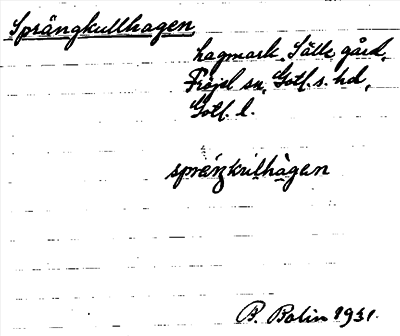 Sprängkullhagen
hagmark, Sälle gård,
Fröjel sn, Gotl. s. hd,
Gotl. l.
spräŋkulhàgen
B. Bolin 1931.